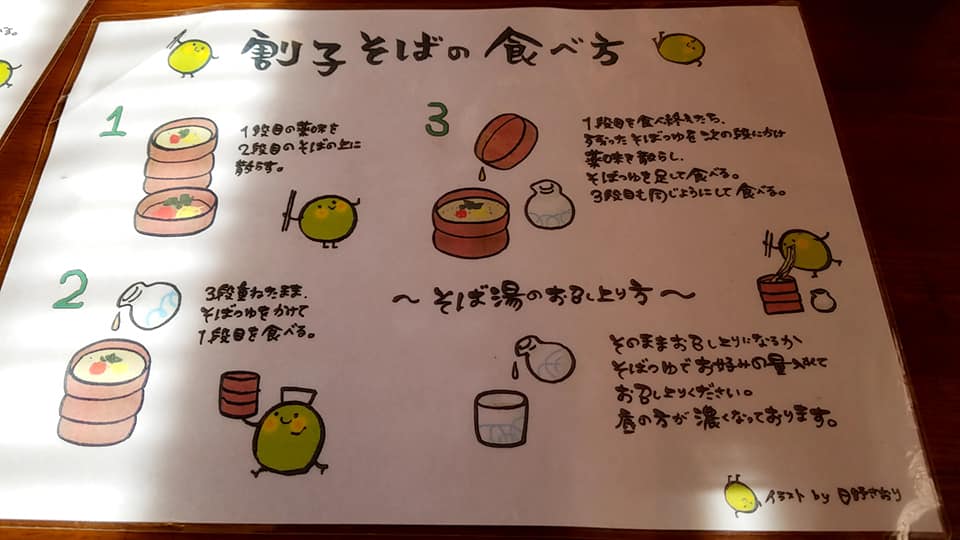 割子そばの食べ方
1
1段目の薬味を
2段目のそばの上に
散らす。
2
3段重ねたまま、
そばつゆをかけて
1段目を食べる。
3
1段目を食べ終えたら、
残ったそばつゆを次の段にかけ
薬味を散らし、
そばつゆを足して食べる。
3段目も同じようにして食べる。
〜そば湯のお召し上り方〜
そのままお召し上りになるか
そばつゆでお好みの量入れて
お召し上りください。
昼の方が濃くなっております。
イラスト by 日野さおり